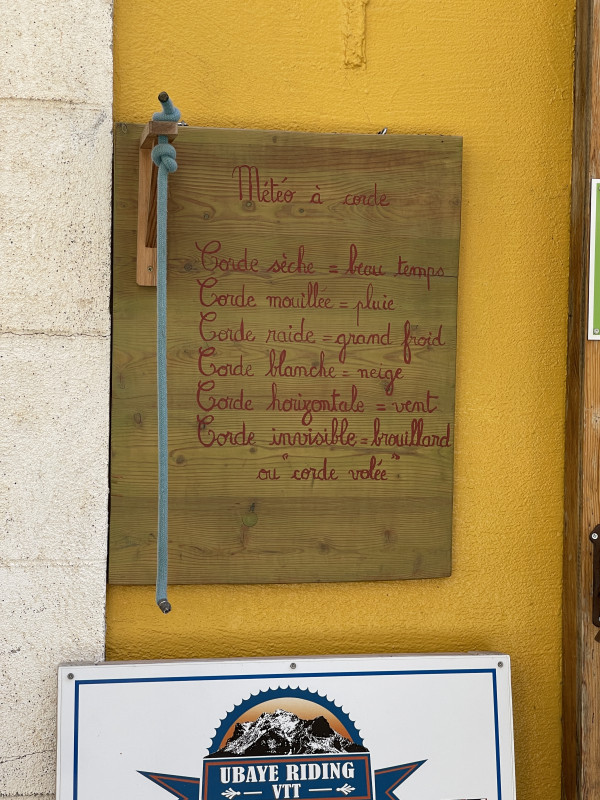 Météo à corde
Corde sèche = beau temps
Corde mouillée = pluie
Corde raide = grand froid
Corde blanche = neige
Corde horizontale = vent
Corde invisible = brouillard
ou "corde volée".
UBAYE RIDING
VTT